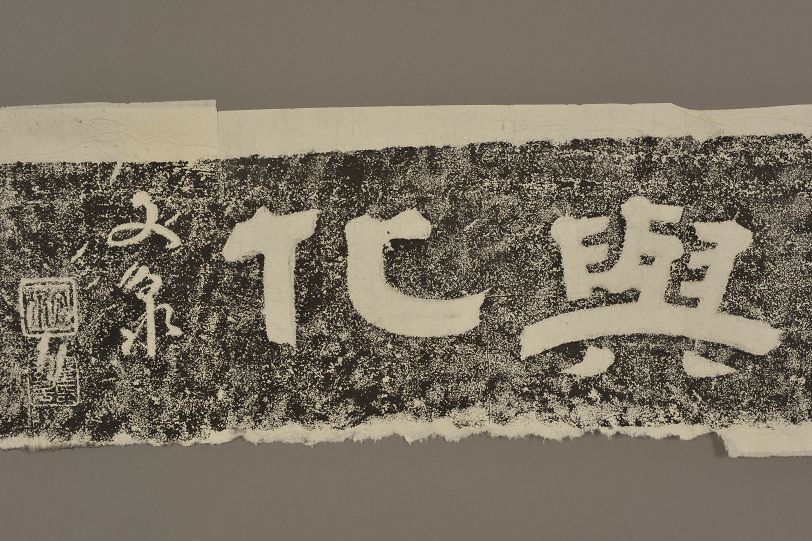 與化
文泉